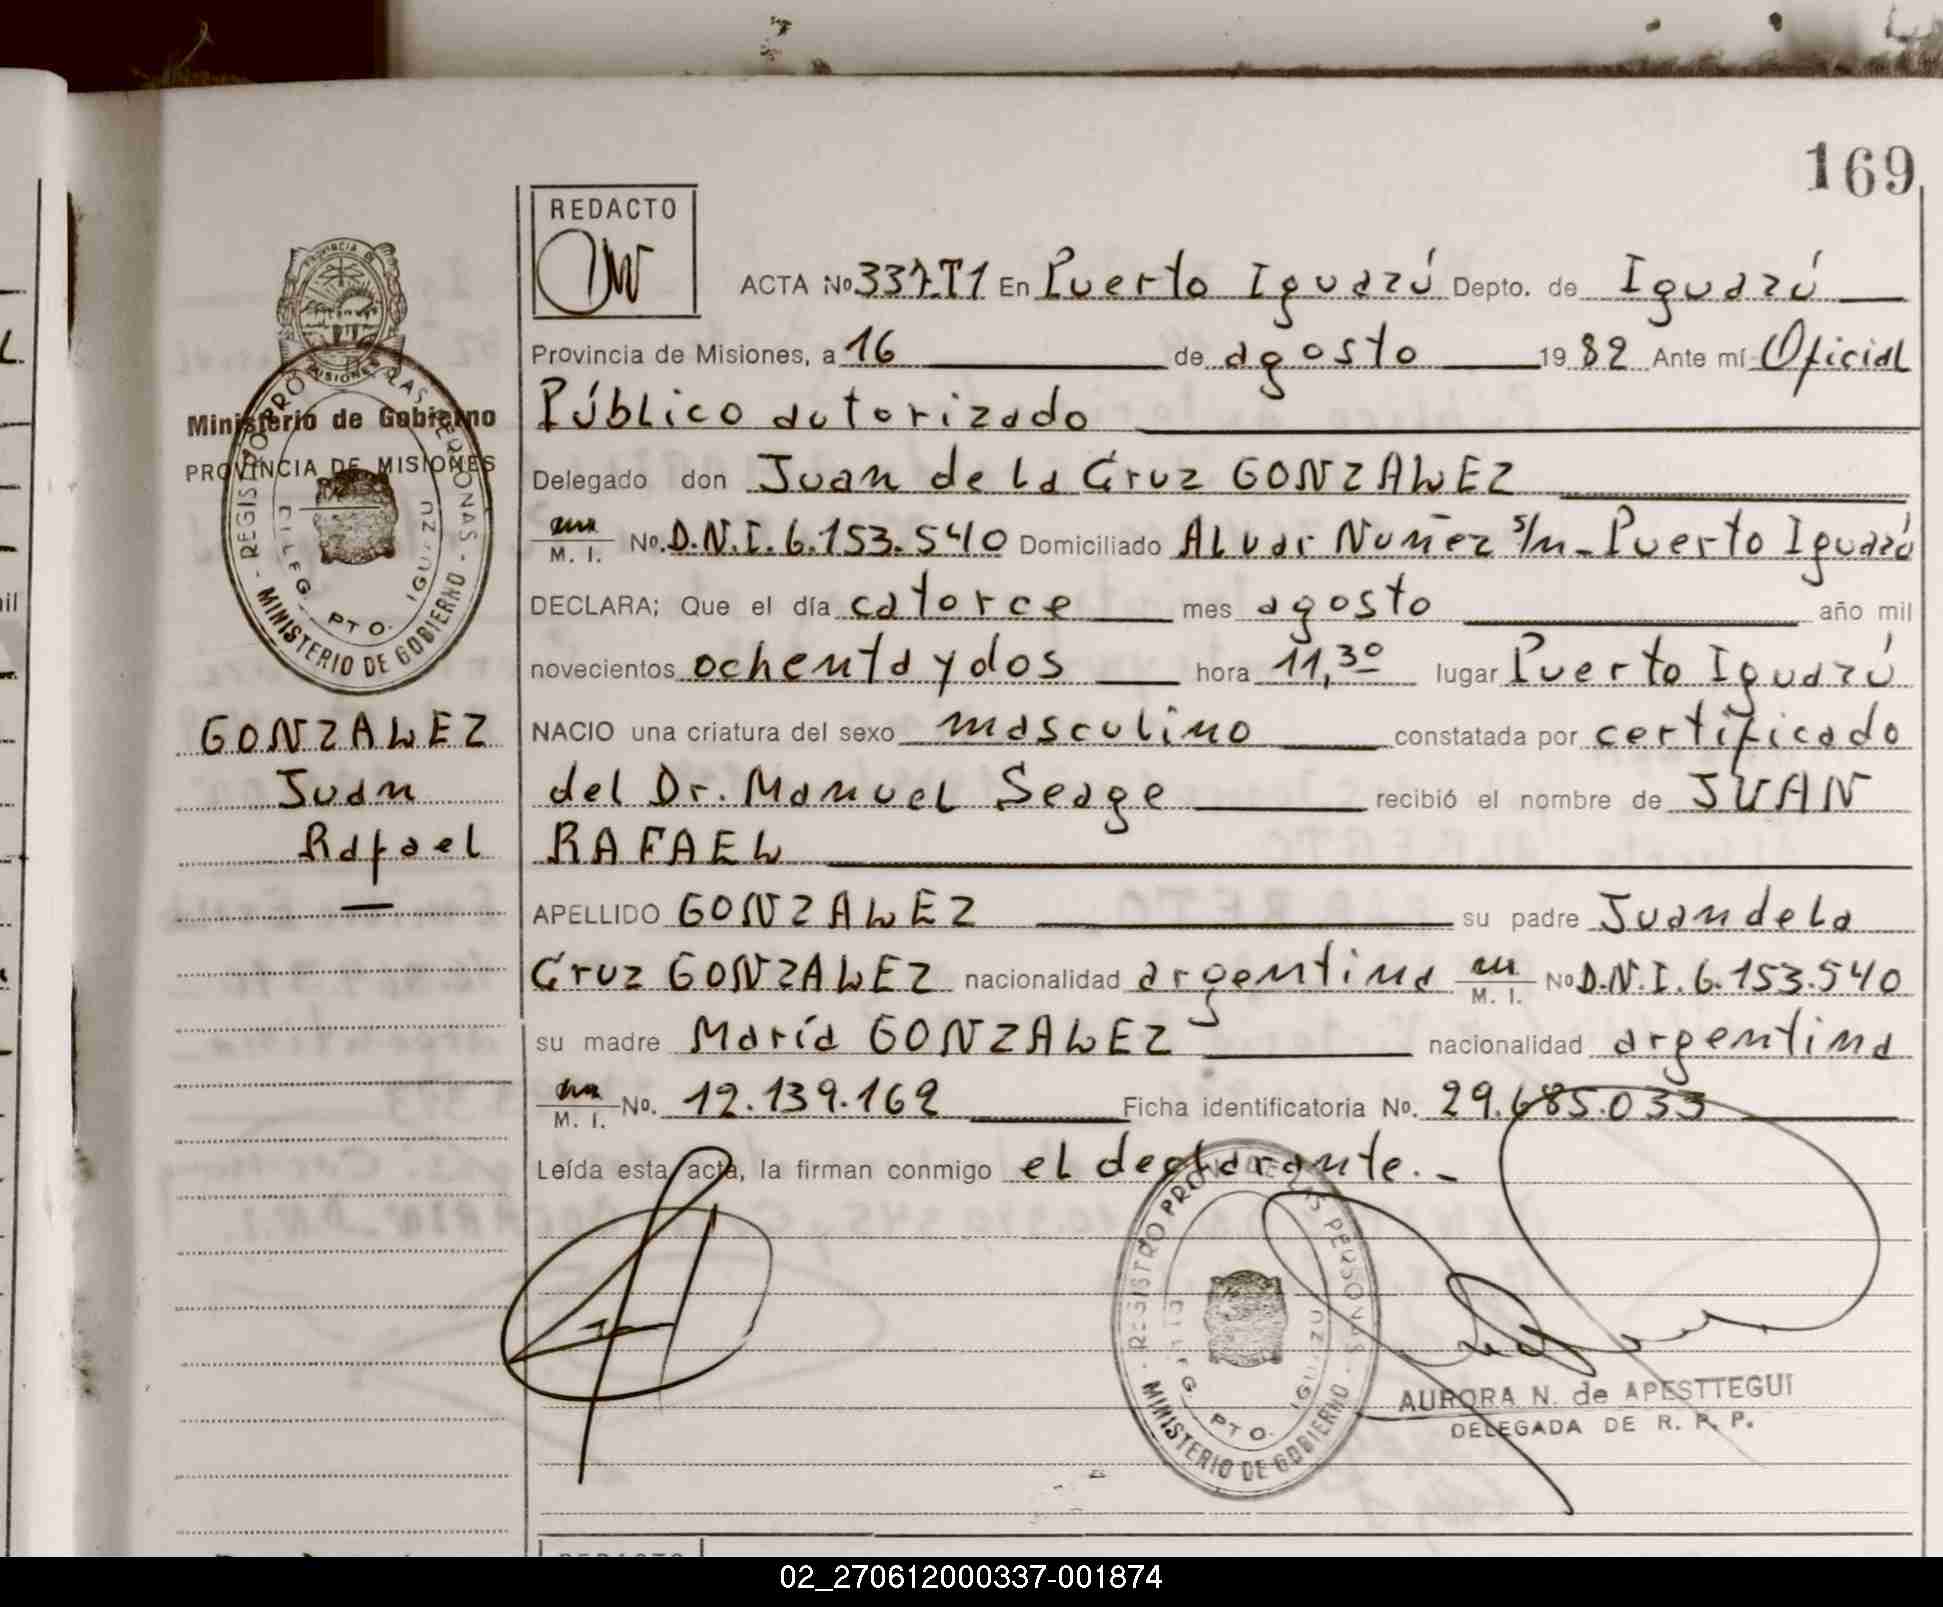 169
REDACTO
ACTA No 337.T1 En Puerto Iguazú Depto. de Iguazú
Provincia de Misiones, a 16 de agosto 1982 Ante mí Oficial
Público autorizado
Ministerio de Gobierno
PROVINCIA DE MISIONES
REGISTRO PROV. DE LAS PERSONAS - MINISTERIO DE GOBIERNO
DELEG. PTO. IGUAZU
Delegado don Juan de la Cruz GONZALEZ
M. I. No. D.N.I. 6.153.540 Domiciliado Alvar Nuñez s/n - Puerto Iguazú
DECLARA; Que el día catorce mes agosto año mil
novecientos ochenta y dos hora 11,30 lugar Puerto Iguazú
GONZALEZ
Juan
Rafael
NACIO una criatura del sexo masculino constatada por certificado
del Dr. Manuel Seage recibió el nombre de JUAN
RAFAEL
APELLIDO GONZALEZ su padre Juan de la
Cruz GONZALEZ nacionalidad argentina M. I. No D.N.I. 6.153.540
su madre María GONZALEZ nacionalidad argentina
M. I. No. 12.139.162 Ficha identificatoria No. 29.685.033
Leída esta acta, la firman conmigo el declarante.-
REGISTRO PROV. DE LAS PERSONAS - MINISTERIO DE GOBIERNO
DELEG. PTO. IGUAZU
AURORA N. de APESTTEGUI
DELEGADA DE R. P. P.
02_270612000337-001874